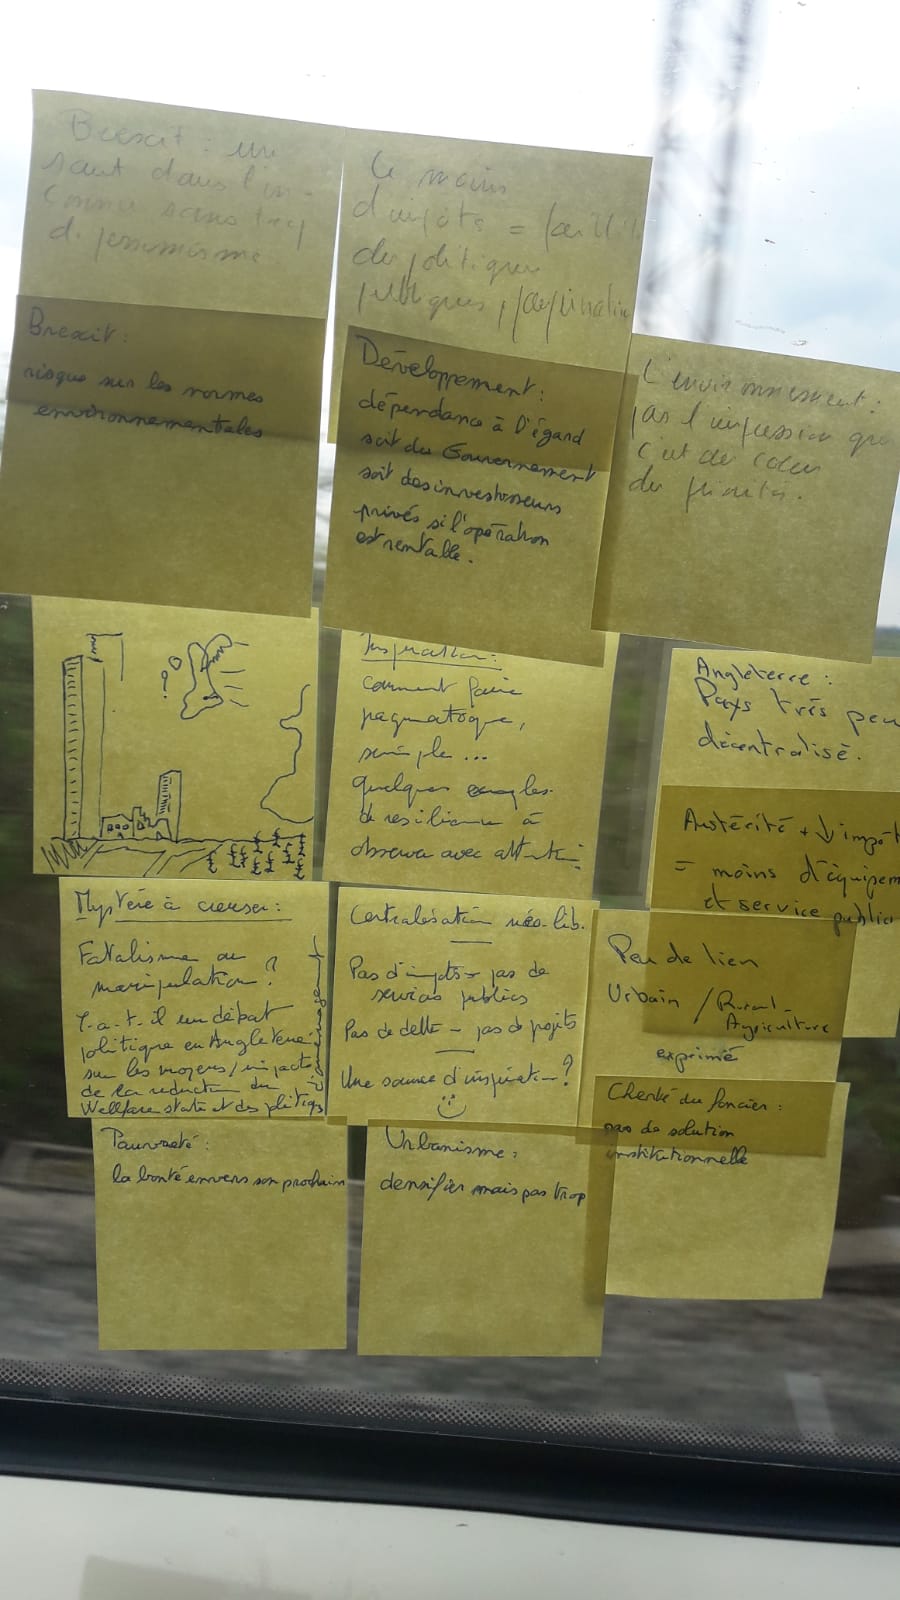 Brexit : un
saut dans l'in-
connu sans trop
de pessimisme
Le moins
d'impôts = faillite
des politiques
publiques,
L'environnement :
pas l'impression que
c'est au coeur
des priorités.
Brexit :
risque sur les normes
environnementales
Développement :
dépendance à l'égard
soit du Gouvernement
soit des investisseurs
privés si l'opération
est rentable.
?
£ £ £ £ £ £ £ £ £
Inspiration :
comment faire
pragmatique,
simple ...
Quelques
de résilience à
observer avec attention
Angleterre :
Pays très peu
décentralisé.
Austérité + ↓ impôt
= moins d'équipem
et service public
Mystère à creuser :
Fatalisme ou
manipulation ?
Y-a-t-il un débat
politique en Angleterre
sur les moyens / impacts
de la réduction du
Wellfare state et des politiqs
d'aménagement
Centralisation néo-lib.
Pas d'impôts = pas de
services publics
Pas de dette = pas de projets
Une source d'inspiration ?
Peu de lien
Urbain / Rural -
Agriculture
exprimé
Cherté du foncier :
pas de solution
institutionnelle
Pauvreté :
la bonté envers son prochain
Urbanisme :
densifier mais pas trop